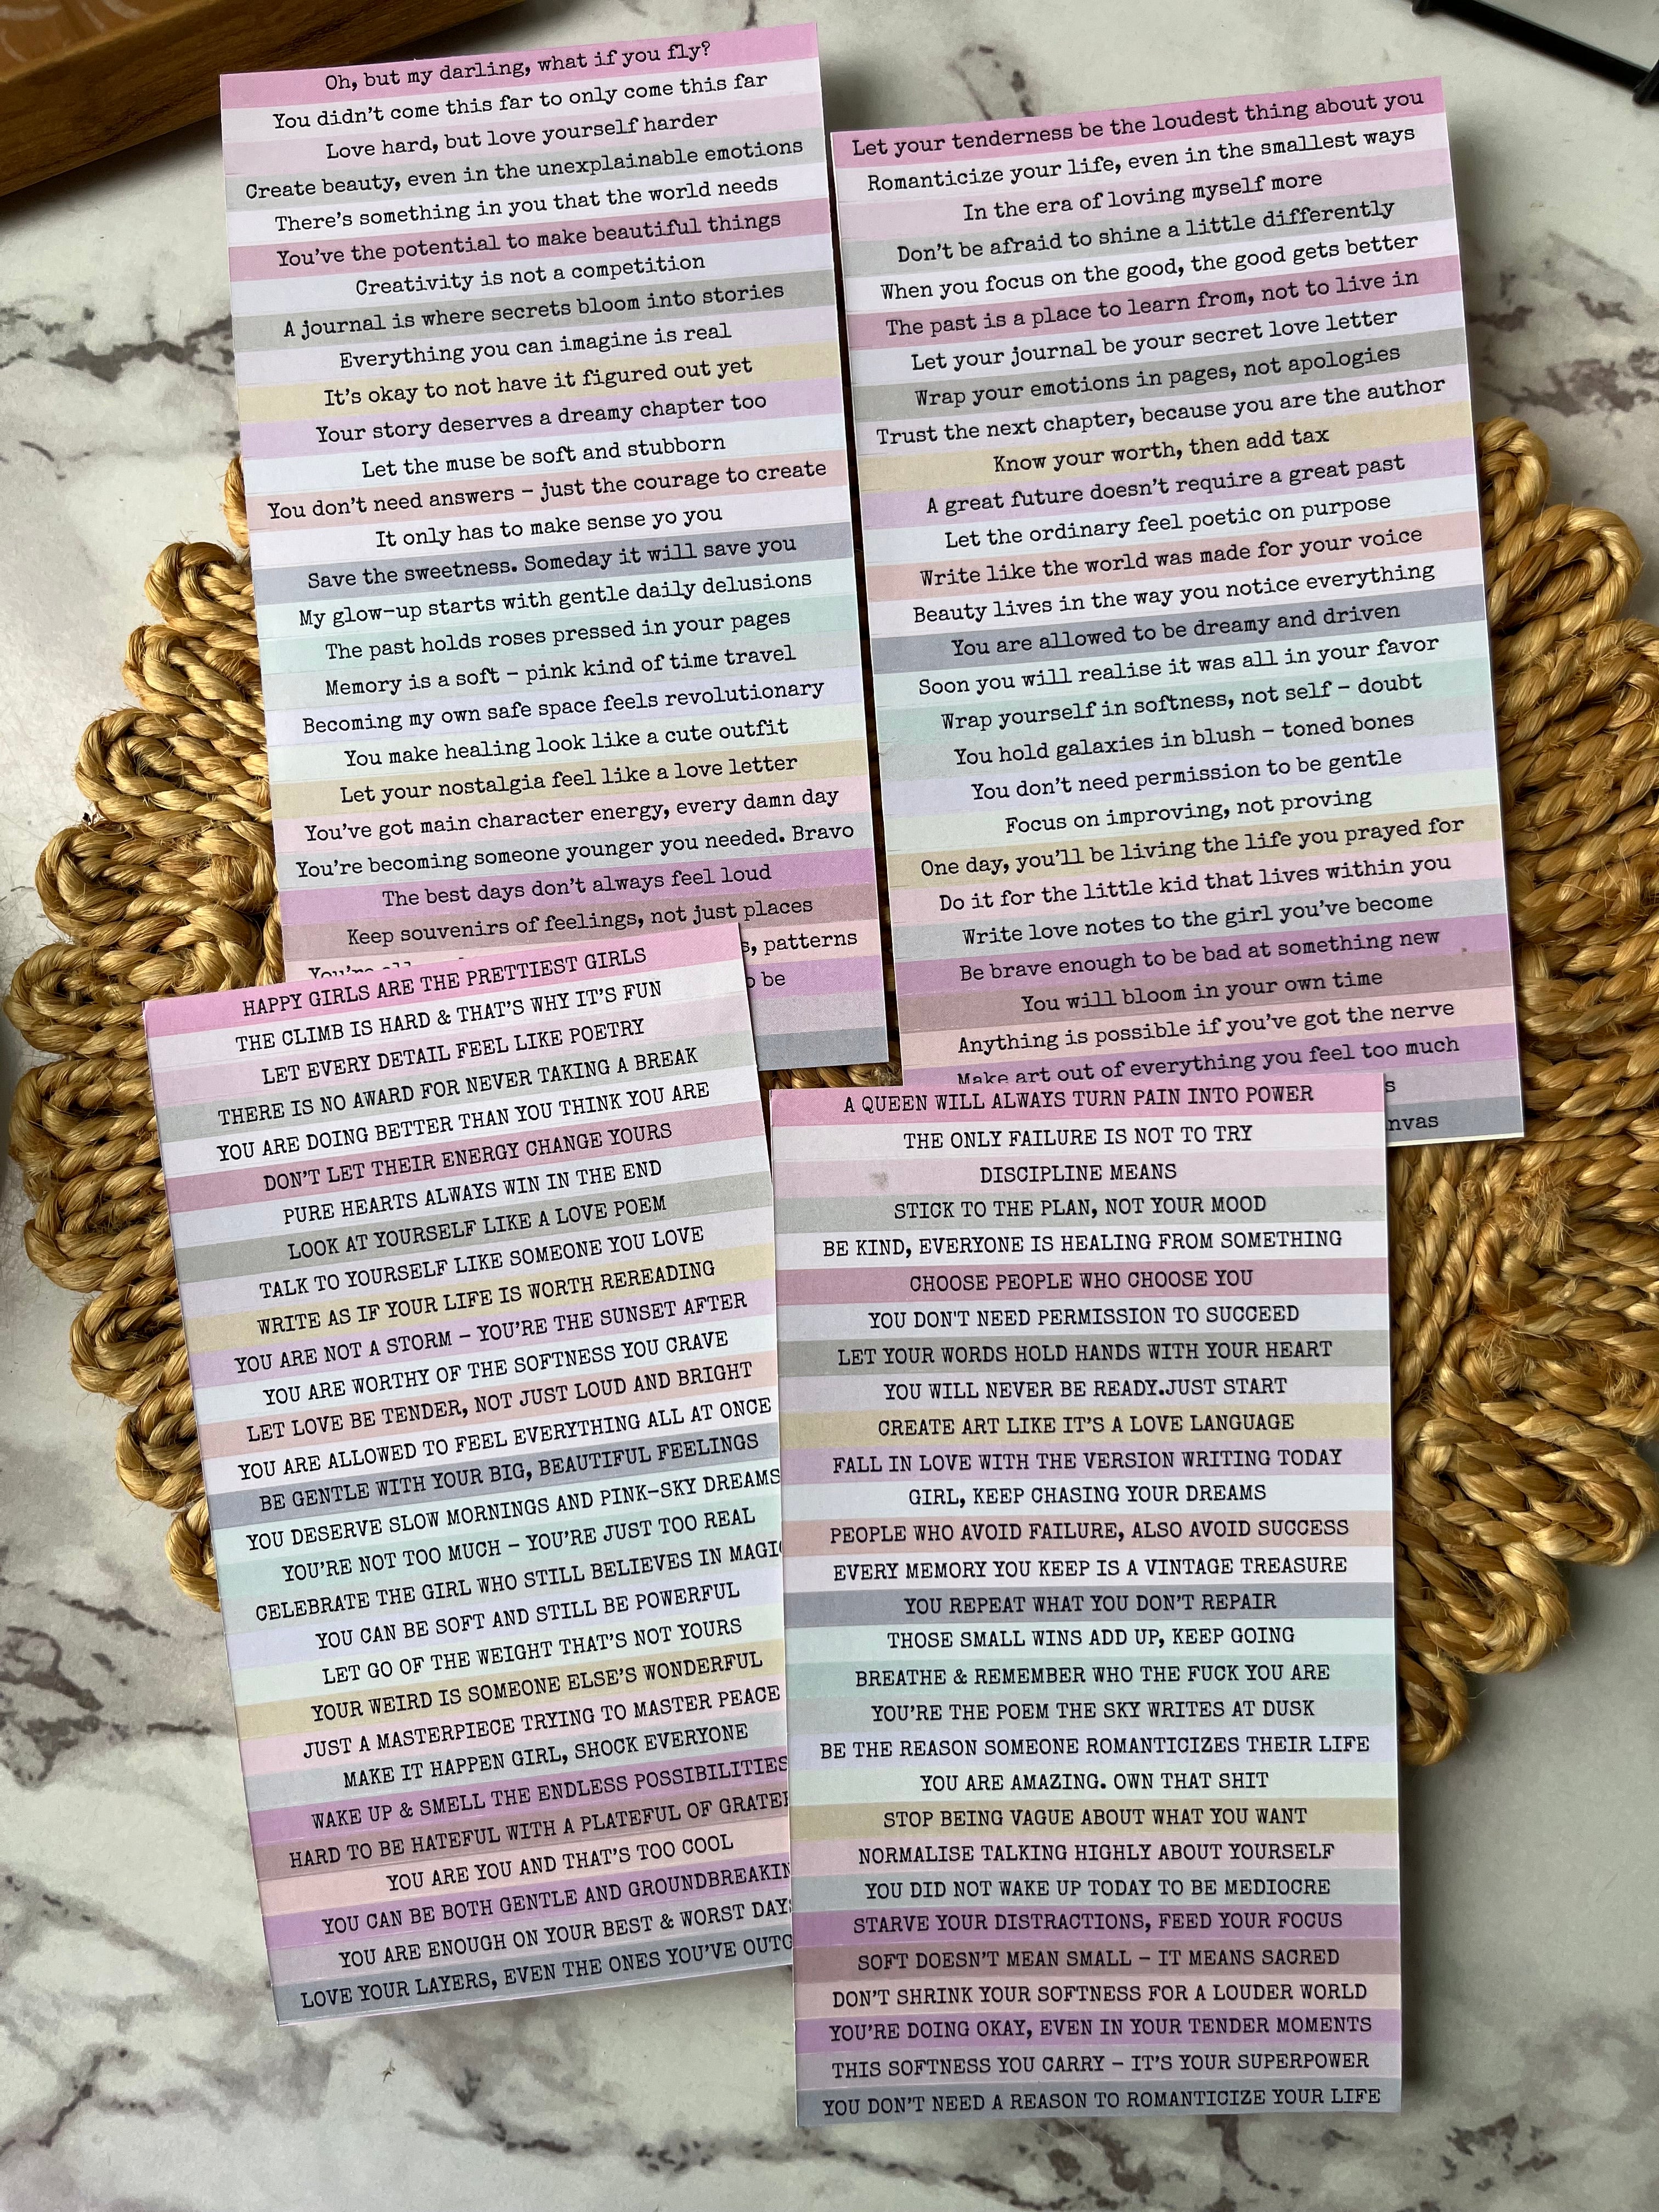 Oh, but my darling, what if you fly?
You didn't come this far to only come this far
Love hard, but love yourself harder
Create beauty, even in the unexplainable emotions
There's something in you that the world needs
You've the potential to make beautiful things
Creativity is not a competition
A journal is where secrets bloom into stories
Everything you can imagine is real
It's okay to not have it figured out yet
Your story deserves a dreamy chapter too
Let the muse be soft and stubborn
You don't need answers – just the courage to create
It only has to make sense yo you
Save the sweetness. Someday it will save you
My glow-up starts with gentle daily delusions
The past holds roses pressed in your pages
Memory is a soft – pink kind of time travel
Becoming my own safe space feels revolutionary
You make healing look like a cute outfit
Let your nostalgia feel like a love letter
You've got main character energy, every damn day
You're becoming someone younger you needed. Bravo
The best days don't always feel loud
Keep souvenirs of feelings, not just places
You're patterns
be
Let your tenderness be the loudest thing about you
Romanticize your life, even in the smallest ways
In the era of loving myself more
Don't be afraid to shine a little differently
When you focus on the good, the good gets better
The past is a place to learn from, not to live in
Let your journal be your secret love letter
Wrap your emotions in pages, not apologies
Trust the next chapter, because you are the author
Know your worth, then add tax
A great future doesn't require a great past
Let the ordinary feel poetic on purpose
Write like the world was made for your voice
Beauty lives in the way you notice everything
You are allowed to be dreamy and driven
Soon you will realise it was all in your favor
Wrap yourself in softness, not self – doubt
You hold galaxies in blush – toned bones
You don't need permission to be gentle
Focus on improving, not proving
One day, you'll be living the life you prayed for
Do it for the little kid that lives within you
Write love notes to the girl you've become
Be brave enough to be bad at something new
You will bloom in your own time
Anything is possible if you've got the nerve
Make art out of everything you feel too much
s
nvas
HAPPY GIRLS ARE THE PRETTIEST GIRLS
THE CLIMB IS HARD & THAT'S WHY IT'S FUN
LET EVERY DETAIL FEEL LIKE POETRY
THERE IS NO AWARD FOR NEVER TAKING A BREAK
YOU ARE DOING BETTER THAN YOU THINK YOU ARE
DON'T LET THEIR ENERGY CHANGE YOURS
PURE HEARTS ALWAYS WIN IN THE END
LOOK AT YOURSELF LIKE A LOVE POEM
TALK TO YOURSELF LIKE SOMEONE YOU LOVE
WRITE AS IF YOUR LIFE IS WORTH REREADING
YOU ARE NOT A STORM – YOU'RE THE SUNSET AFTER
YOU ARE WORTHY OF THE SOFTNESS YOU CRAVE
LET LOVE BE TENDER, NOT JUST LOUD AND BRIGHT
YOU ARE ALLOWED TO FEEL EVERYTHING ALL AT ONCE
BE GENTLE WITH YOUR BIG, BEAUTIFUL FEELINGS
YOU DESERVE SLOW MORNINGS AND PINK-SKY DREAMS
YOU'RE NOT TOO MUCH – YOU'RE JUST TOO REAL
CELEBRATE THE GIRL WHO STILL BELIEVES IN MAGIC
YOU CAN BE SOFT AND STILL BE POWERFUL
LET GO OF THE WEIGHT THAT'S NOT YOURS
YOUR WEIRD IS SOMEONE ELSE'S WONDERFUL
JUST A MASTERPIECE TRYING TO MASTER PEACE
MAKE IT HAPPEN GIRL, SHOCK EVERYONE
WAKE UP & SMELL THE ENDLESS POSSIBILITIES
HARD TO BE HATEFUL WITH A PLATEFUL OF GRATE
YOU ARE YOU AND THAT'S TOO COOL
YOU CAN BE BOTH GENTLE AND GROUNDBREAKIN
YOU ARE ENOUGH ON YOUR BEST & WORST DAYS
LOVE YOUR LAYERS, EVEN THE ONES YOU'VE OUTG
A QUEEN WILL ALWAYS TURN PAIN INTO POWER
THE ONLY FAILURE IS NOT TO TRY
DISCIPLINE MEANS
STICK TO THE PLAN, NOT YOUR MOOD
BE KIND, EVERYONE IS HEALING FROM SOMETHING
CHOOSE PEOPLE WHO CHOOSE YOU
YOU DON'T NEED PERMISSION TO SUCCEED
LET YOUR WORDS HOLD HANDS WITH YOUR HEART
YOU WILL NEVER BE READY.JUST START
CREATE ART LIKE IT'S A LOVE LANGUAGE
FALL IN LOVE WITH THE VERSION WRITING TODAY
GIRL, KEEP CHASING YOUR DREAMS
PEOPLE WHO AVOID FAILURE, ALSO AVOID SUCCESS
EVERY MEMORY YOU KEEP IS A VINTAGE TREASURE
YOU REPEAT WHAT YOU DON'T REPAIR
THOSE SMALL WINS ADD UP, KEEP GOING
BREATHE & REMEMBER WHO THE FUCK YOU ARE
YOU'RE THE POEM THE SKY WRITES AT DUSK
BE THE REASON SOMEONE ROMANTICIZES THEIR LIFE
YOU ARE AMAZING. OWN THAT SHIT
STOP BEING VAGUE ABOUT WHAT YOU WANT
NORMALISE TALKING HIGHLY ABOUT YOURSELF
YOU DID NOT WAKE UP TODAY TO BE MEDIOCRE
STARVE YOUR DISTRACTIONS, FEED YOUR FOCUS
SOFT DOESN'T MEAN SMALL – IT MEANS SACRED
DON'T SHRINK YOUR SOFTNESS FOR A LOUDER WORLD
YOU'RE DOING OKAY, EVEN IN YOUR TENDER MOMENTS
THIS SOFTNESS YOU CARRY – IT'S YOUR SUPERPOWER
YOU DON'T NEED A REASON TO ROMANTICIZE YOUR LIFE